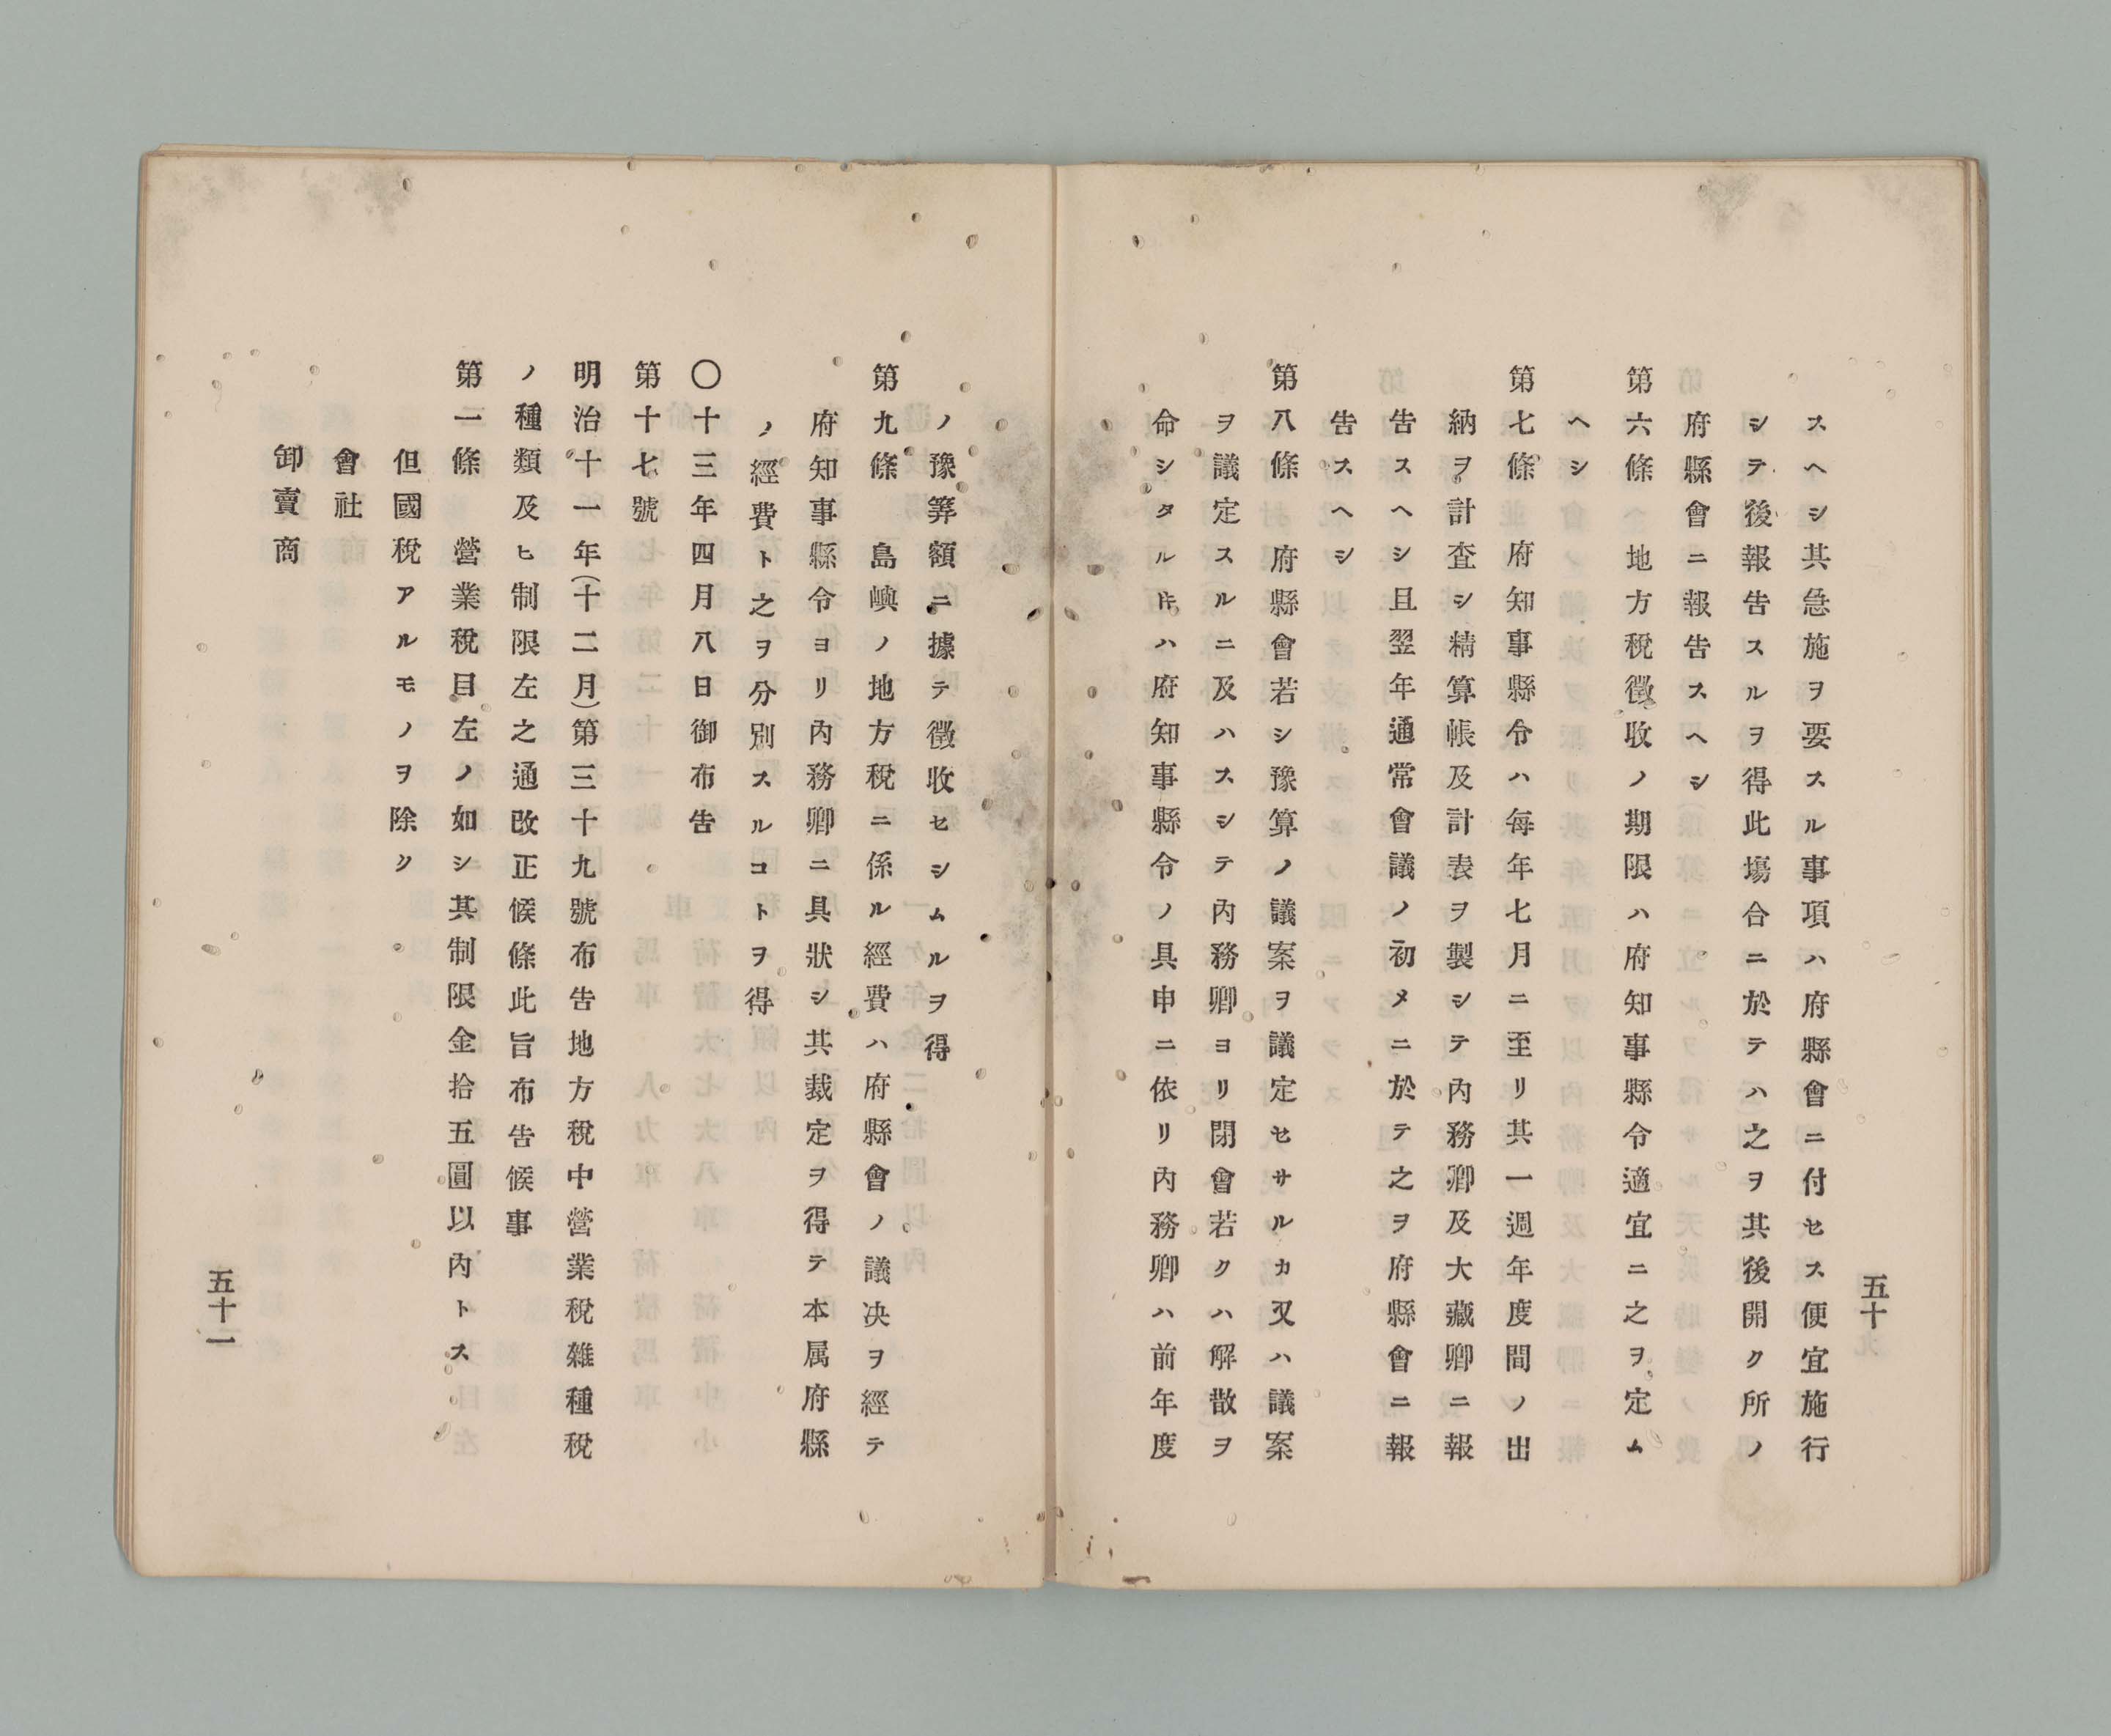 スヘシ其急施ヲ要スル事項ハ府縣會ニ付セス便宜施行
シテ後報告スルヲ得此塲合ニ於テハ之ヲ其後開ク所ノ
府縣會ニ報告スヘシ
第六條　地方稅徵收ノ期限ハ府知事縣令適宜ニ之ヲ定ム
ヘシ
第七條　府知事縣令ハ每年七月ニ至リ其一週年度間ノ出
納ヲ計査シ精算帳及計表ヲ製シテ內務卿及大藏卿ニ報
告スヘシ且翌年通常會議ノ初メニ於テ之ヲ府縣會ニ報
告スヘシ
第八條　府縣會若シ豫算ノ議案ヲ議定セサルカ又ハ議案
ヲ議定スルニ及ハスシテ內務卿ヨリ閉會若クハ解散ヲ
命シタルㇳキハ府知事縣令ノ具申ニ依リ內務卿ハ前年度
五十
ノ豫算額ニ據テ徵收セシムルヲ得
第九條　島嶼ノ地方稅ニ係ル經費ハ府縣會ノ議決ヲ經テ
府知事縣令ヨリ內務卿ニ具狀シ其裁定ヲ得テ本属府縣
ノ經費ト之ヲ分別スルコトヲ得
〇十三年四月八日御布告
第十七號
明治十一年(十二月)第三十九號布告地方稅中營業稅雜種稅
ノ種類及ヒ制限左之通改正候條此旨布告候事
第一條　營業稅目左ノ如シ其制限金拾五圓以內トス
但國稅アルモノヲ除ク
會社
卸賣商
五十一